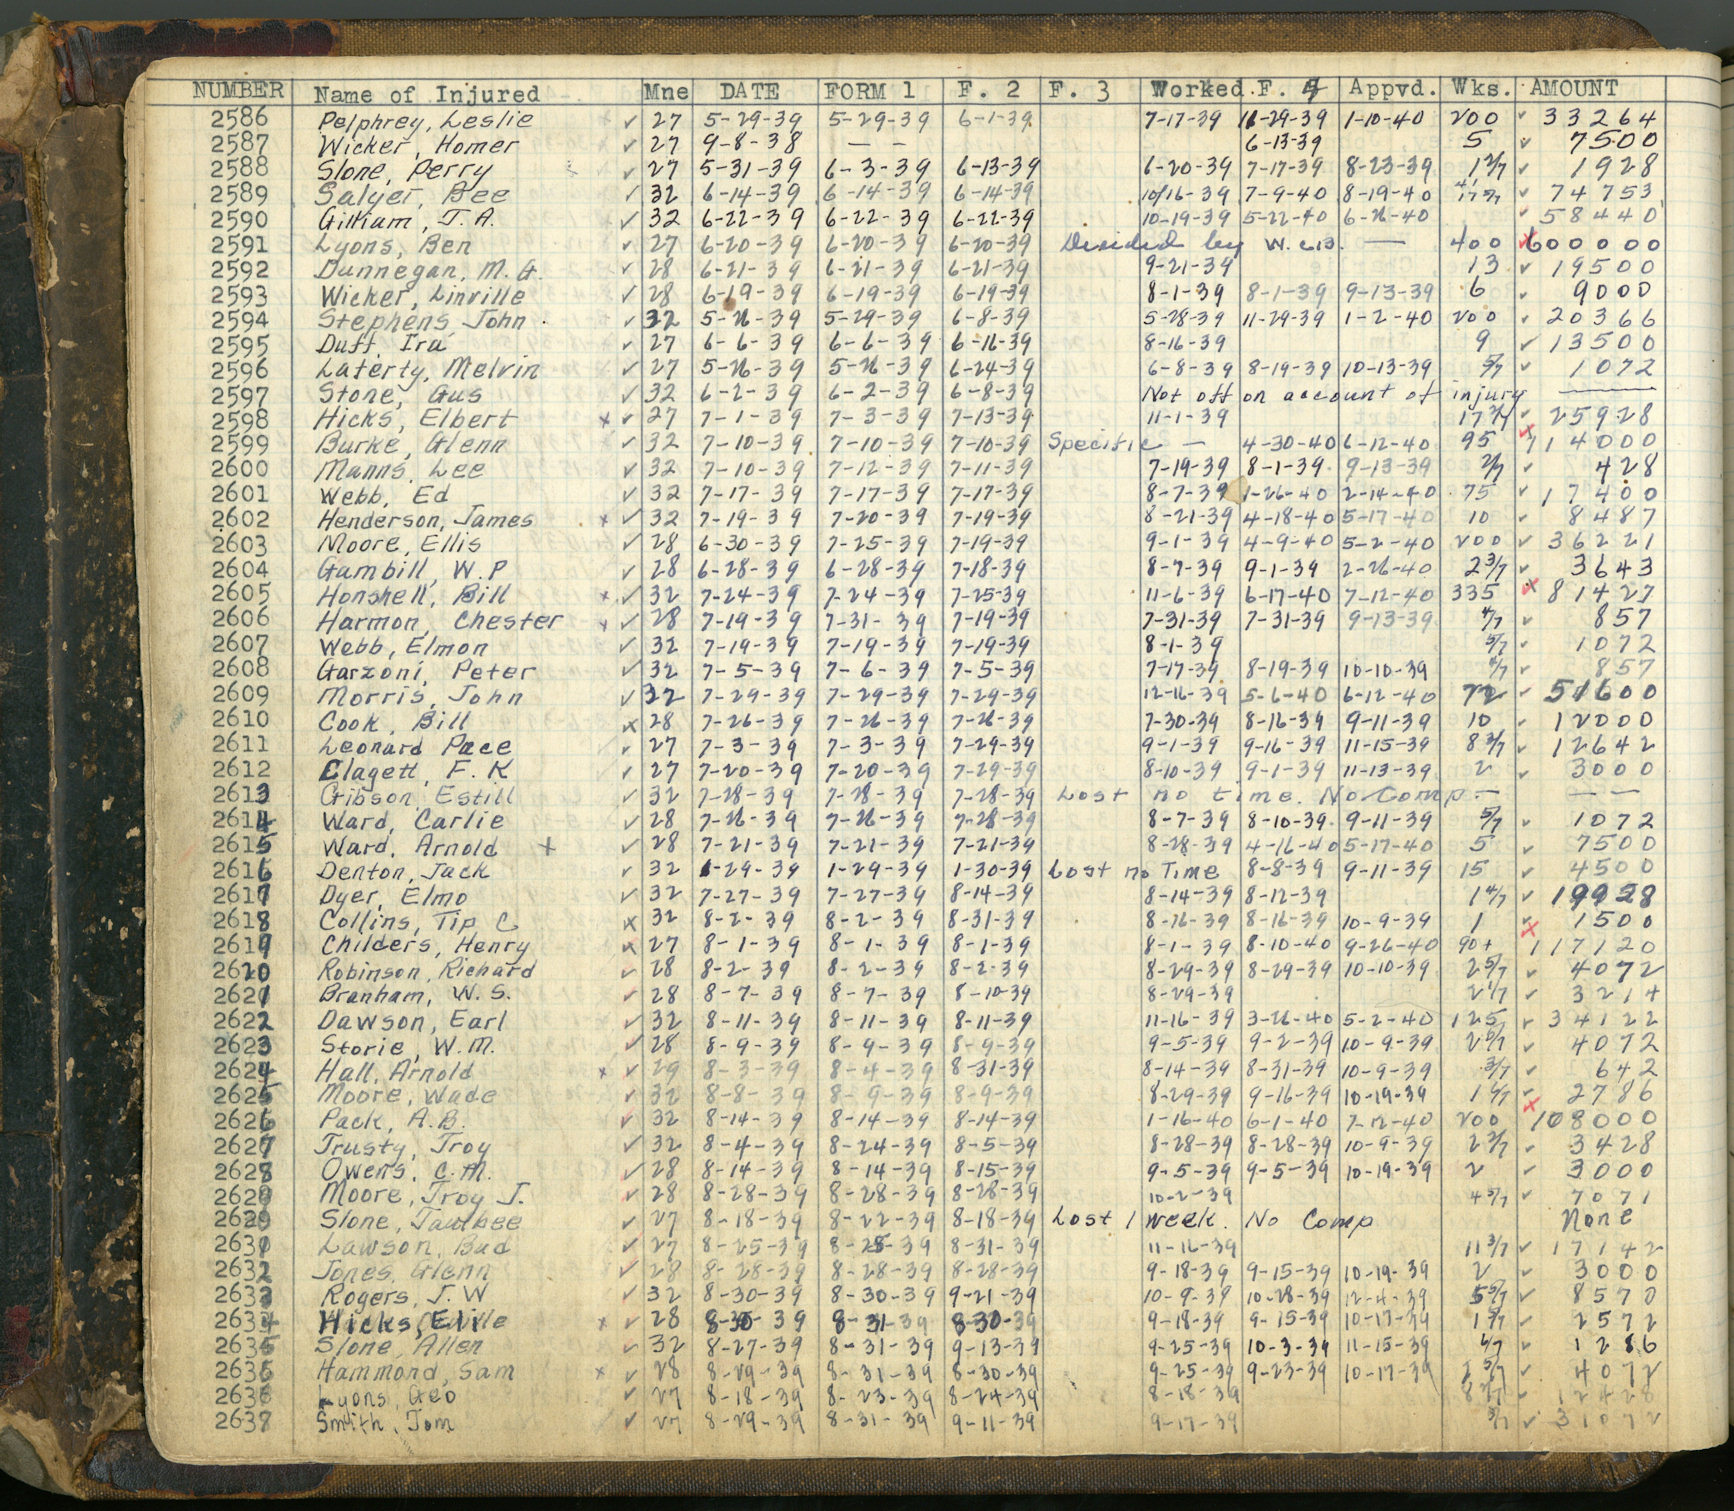 NUMBER Name of Injured Mne DATE FORM 1 F. 2 F. 3 Worked F. 4 Appvd. Wks. AMOUNT
2586 Pelphrey, Leslie ✓ 27 5-29-39 5-29-39 6-1-39 7-17-39 11-29-39 1-10-40 200 ✓ 33264
2587 Wicker, Homer ✓ 27 9-8-38 — — 6-13-39 5 ✓ 7500
2588 Slone, Perry ✓ 27 5-31-39 6-3-39 6-13-39 6-20-39 7-17-39 8-23-39 1 2/7 ✓ 1928
2589 Salyer, Bee ✓ 32 6-14-39 6-14-39 6-14-39 10/16-39 7-9-40 8-19-40 ✓ 74753
2590 Gilliam, J.A. ✓ 32 6-22-39 6-22-39 6-22-39 10-19-39 5-22-40 6-26-40 ✓ 58440
2591 Lyons, Ben ✓ 27 6-20-39 6-20-39 6-20-39 Denied by W.C.B. — 400 x 600000
2592 Dunnegan, M.G. ✓ 28 6-21-39 6-21-39 6-21-39 9-21-39 13 ✓ 19500
2593 Wicker, Linville ✓ 28 6-19-39 6-19-39 6-19-39 8-1-39 8-1-39 9-13-39 6 ✓ 9000
2594 Stephens, John ✓ 32 5-26-39 5-29-39 6-8-39 5-28-39 11-29-39 1-2-40 200 ✓ 20366
2595 Duff, Ira ✓ 27 6-6-39 6-6-39 6-16-39 8-16-39 9 ✓ 13500
2596 Laferty, Melvin ✓ 27 5-26-39 5-26-39 6-24-39 6-8-39 8-19-39 10-13-39 5/7 ✓ 1072
2597 Stone, Gus ✓ 32 6-2-39 6-2-39 6-8-39 Not off on account of injury —
2598 Hicks, Elbert x ✓ 27 7-1-39 7-3-39 7-13-39 11-1-39 17 2/7 ✓ 25928
2599 Burke, Glenn ✓ 32 7-10-39 7-10-39 7-10-39 Specific — 4-30-40 6-12-40 95 x 114000
2600 Manns, Lee ✓ 32 7-10-39 7-12-39 7-11-39 7-19-39 8-1-39 9-13-39 2/7 ✓ 428
2601 Webb, Ed ✓ 32 7-17-39 7-17-39 7-17-39 8-7-39 1-26-40 2-14-40 75 ✓ 17400
2602 Henderson, James x ✓ 32 7-19-39 7-20-39 7-19-39 8-21-39 4-18-40 5-17-40 10 ✓ 8487
2603 Moore, Ellis ✓ 28 6-30-39 7-25-39 7-19-39 9-1-39 4-9-40 5-2-40 200 ✓ 36221
2604 Gambill, W.P ✓ 28 6-28-39 6-28-39 7-18-39 8-7-39 9-1-39 2-26-40 2 3/7 ✓ 3643
2605 Honshell, Bill x ✓ 32 7-24-39 7-24-39 7-25-39 11-6-39 6-17-40 7-12-40 335 x 81427
2606 Harmon, Chester x ✓ 28 7-19-39 7-31-39 7-19-39 7-31-39 7-31-39 9-13-39 4/7 ✓ 857
2607 Webb, Elmon ✓ 32 7-19-39 7-19-39 7-19-39 8-1-39 5/7 ✓ 1072
2608 Garzoni, Peter ✓ 32 7-5-39 7-6-39 7-5-39 7-17-39 8-19-39 10-10-39 4/7 ✓ 857
2609 Morris, John ✓ 32 7-29-39 7-29-39 7-29-39 12-16-39 5-6-40 6-12-40 72 ✓ 51600
2610 Cook, Bill x 28 7-26-39 7-26-39 7-26-39 7-30-39 8-16-39 9-11-39 10 ✓ 12000
2611 Leonard Pace ✓ 27 7-3-39 7-3-39 7-29-39 9-1-39 9-16-39 11-15-39 8 3/7 ✓ 12642
2612 Clagett, F.K ✓ 27 7-20-39 7-20-39 7-29-39 8-10-39 9-1-39 11-13-39 2 ✓ 3000
2613 Gibson, Estill ✓ 32 7-28-39 7-28-39 7-28-39 Lost no time. No Comp. — — —
2614 Ward, Carlie ✓ 28 7-26-39 7-26-39 7-28-39 8-7-39 8-10-39 9-11-39 5/7 ✓ 1072
2615 Ward, Arnold x ✓ 28 7-21-39 7-21-39 7-21-39 8-28-39 4-16-40 5-17-40 5 ✓ 7500
2616 Denton, Jack ✓ 32 1-29-39 1-29-39 1-30-39 Lost no Time 8-8-39 9-11-39 15 ✓ 4500
2617 Dyer, Elmo ✓ 32 7-27-39 7-27-39 8-14-39 8-14-39 8-12-39 1 4/7 ✓ 19928
2618 Collins, Tip C x 32 8-2-39 8-2-39 8-31-39 8-16-39 8-16-39 10-9-39 1 ✓ 1500
2619 Childers, Henry x 27 8-1-39 8-1-39 8-1-39 8-1-39 8-10-40 9-26-40 90+ x 117120
2620 Robinson, Richard ✓ 28 8-2-39 8-2-39 8-2-39 8-29-39 8-29-39 10-10-39 2 5/7 ✓ 4072
2621 Branham, W.S. ✓ 28 8-7-39 8-7-39 8-10-39 8-29-39 2 1/7 ✓ 3214
2622 Dawson, Earl ✓ 32 8-11-39 8-11-39 8-11-39 11-16-39 3-26-40 5-2-40 125 ✓ 34122
2623 Storie, W.M. ✓ 28 8-9-39 8-9-39 8-9-39 9-5-39 9-2-39 10-9-39 2 5/7 ✓ 4072
2624 Hall, Arnold x ✓ 29 8-3-39 8-4-39 8-31-39 8-14-39 8-31-39 10-9-39 3/7 ✓ 642
2625 Moore, Wade ✓ 32 8-8-39 8-9-39 8-9-39 8-29-39 9-16-39 10-19-39 1 6/7 ✓ 2786
2626 Pack, A.B. ✓ 32 8-14-39 8-14-39 8-14-39 1-16-40 6-1-40 7-12-40 200 x 108000
2627 Trusty, Troy ✓ 32 8-4-39 8-24-39 8-5-39 8-28-39 8-28-39 10-9-39 2 2/7 ✓ 3428
2628 Owens, C.M. ✓ 28 8-14-39 8-14-39 8-15-39 9-5-39 9-5-39 10-19-39 2 ✓ 3000
2629 Moore, Troy J. ✓ 28 8-28-39 8-28-39 8-28-39 10-2-39 4 5/7 ✓ 7071
Slone, Taulbee ✓ 27 8-18-39 8-22-39 8-18-39 Lost 1 week. No Comp None
2631 Lawson, Bud ✓ 27 8-25-39 8-25-39 8-31-39 11-16-39 11 3/7 ✓ 17142
2632 Jones, Glenn ✓ 28 8-28-39 8-28-39 8-28-39 9-18-39 9-15-39 10-19-39 2 ✓ 3000
2633 Rogers, J.W ✓ 32 8-30-39 8-30-39 9-21-39 10-9-39 10-28-39 12-4-39 5 5/7 ✓ 8570
2634 Hicks, x ✓ 28 8-30-39 8-31-39 8-30-39 9-18-39 9-15-39 10-17-39 1 5/7 ✓ 2572
2635 Slone, Allen ✓ 32 8-27-39 8-31-39 9-13-39 9-25-39 10-3-39 11-15-39 6/7 ✓ 1286
2636 Hammond, Sam x ✓ 28 8-29-39 8-31-39 8-30-39 9-25-39 9-23-39 10-17-39 2 5/7 ✓ 4072
Lyons, Geo ✓ 27 8-18-39 8-23-39 8-24-39 8-18-39 ✓
2637 Smith, Tom ✓ 27 8-29-39 8-31-39 9-11-39 9-17-39 ✓ 31072